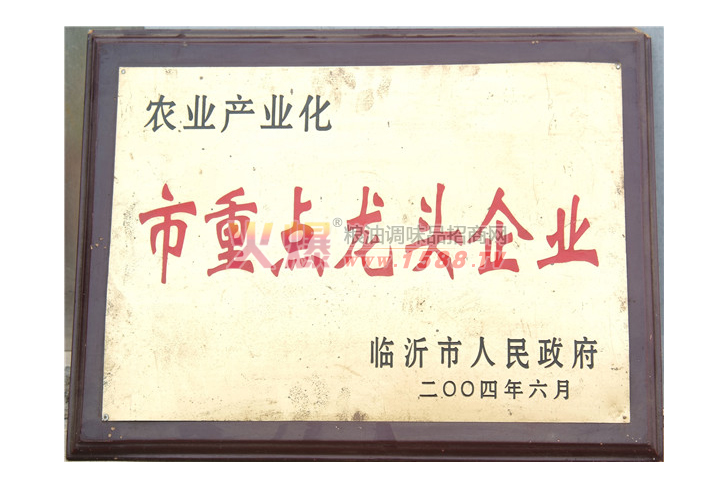 农业产业化
市重点龙头企业
火爆®粮油调味品招商网
www.1588.TV
临沂市人民政府
二〇〇四年六月